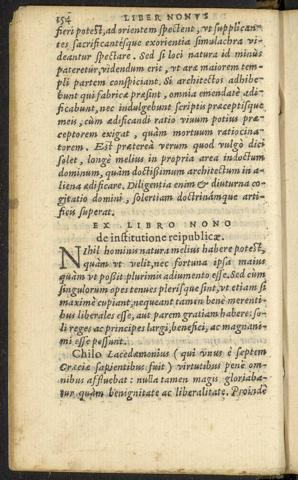 154 LIBER NONVS
fieri potest, ad orientem spectent, vt supplican-
tes sacrificantésque exorientia simulachra vi-
deantur spectare. Sed si loci natura id minùs
pateretur, videndum erit, vt aræ maiorem tem-
pli partem conspiciant. Si architectos adhibe-
bunt qui fabricæ præsint, omnia emendatè ædi-
ficabunt, nec indulgebunt scriptis præceptisque
meis, cùm ædificandi ratio viuum potius præ-
ceptorem exigat, quàm mortuum ratiocina-
torem. Est præterea verum quod vulgò dici
solet, longè melius in propria area indoctum
dominum, quàm doctissimum architectum in a-
liena ædificare. Diligentia enim & diuturna co-
gitatio domini, solertiam doctrinámque arti-
ficis superat.
EX LIBRO NONO
de institutione reipublicæ.
Nihil hominis natura melius habere potest,
quàm vt velit, nec fortuna ipsa maius
quàm vt possit plurimis adiumento esse. Sed cùm
singulorum opes tenues plerisque sint, vt etiam si
maximè cupiant, nequeant tamen benè merenti-
bus liberales esse, aut parem gratiam habere: so-
li reges ac principes largi, benefici, ac magnani-
mi esse possunt.
Chilo Lacedæmonius (qui vnus è septem
Græciæ sapientibus fuit) virtutibus penè om-
nibus affluebat: nulla tamen magis gloriaba-
tur quàm benignitate ac liberalitate. Proinde